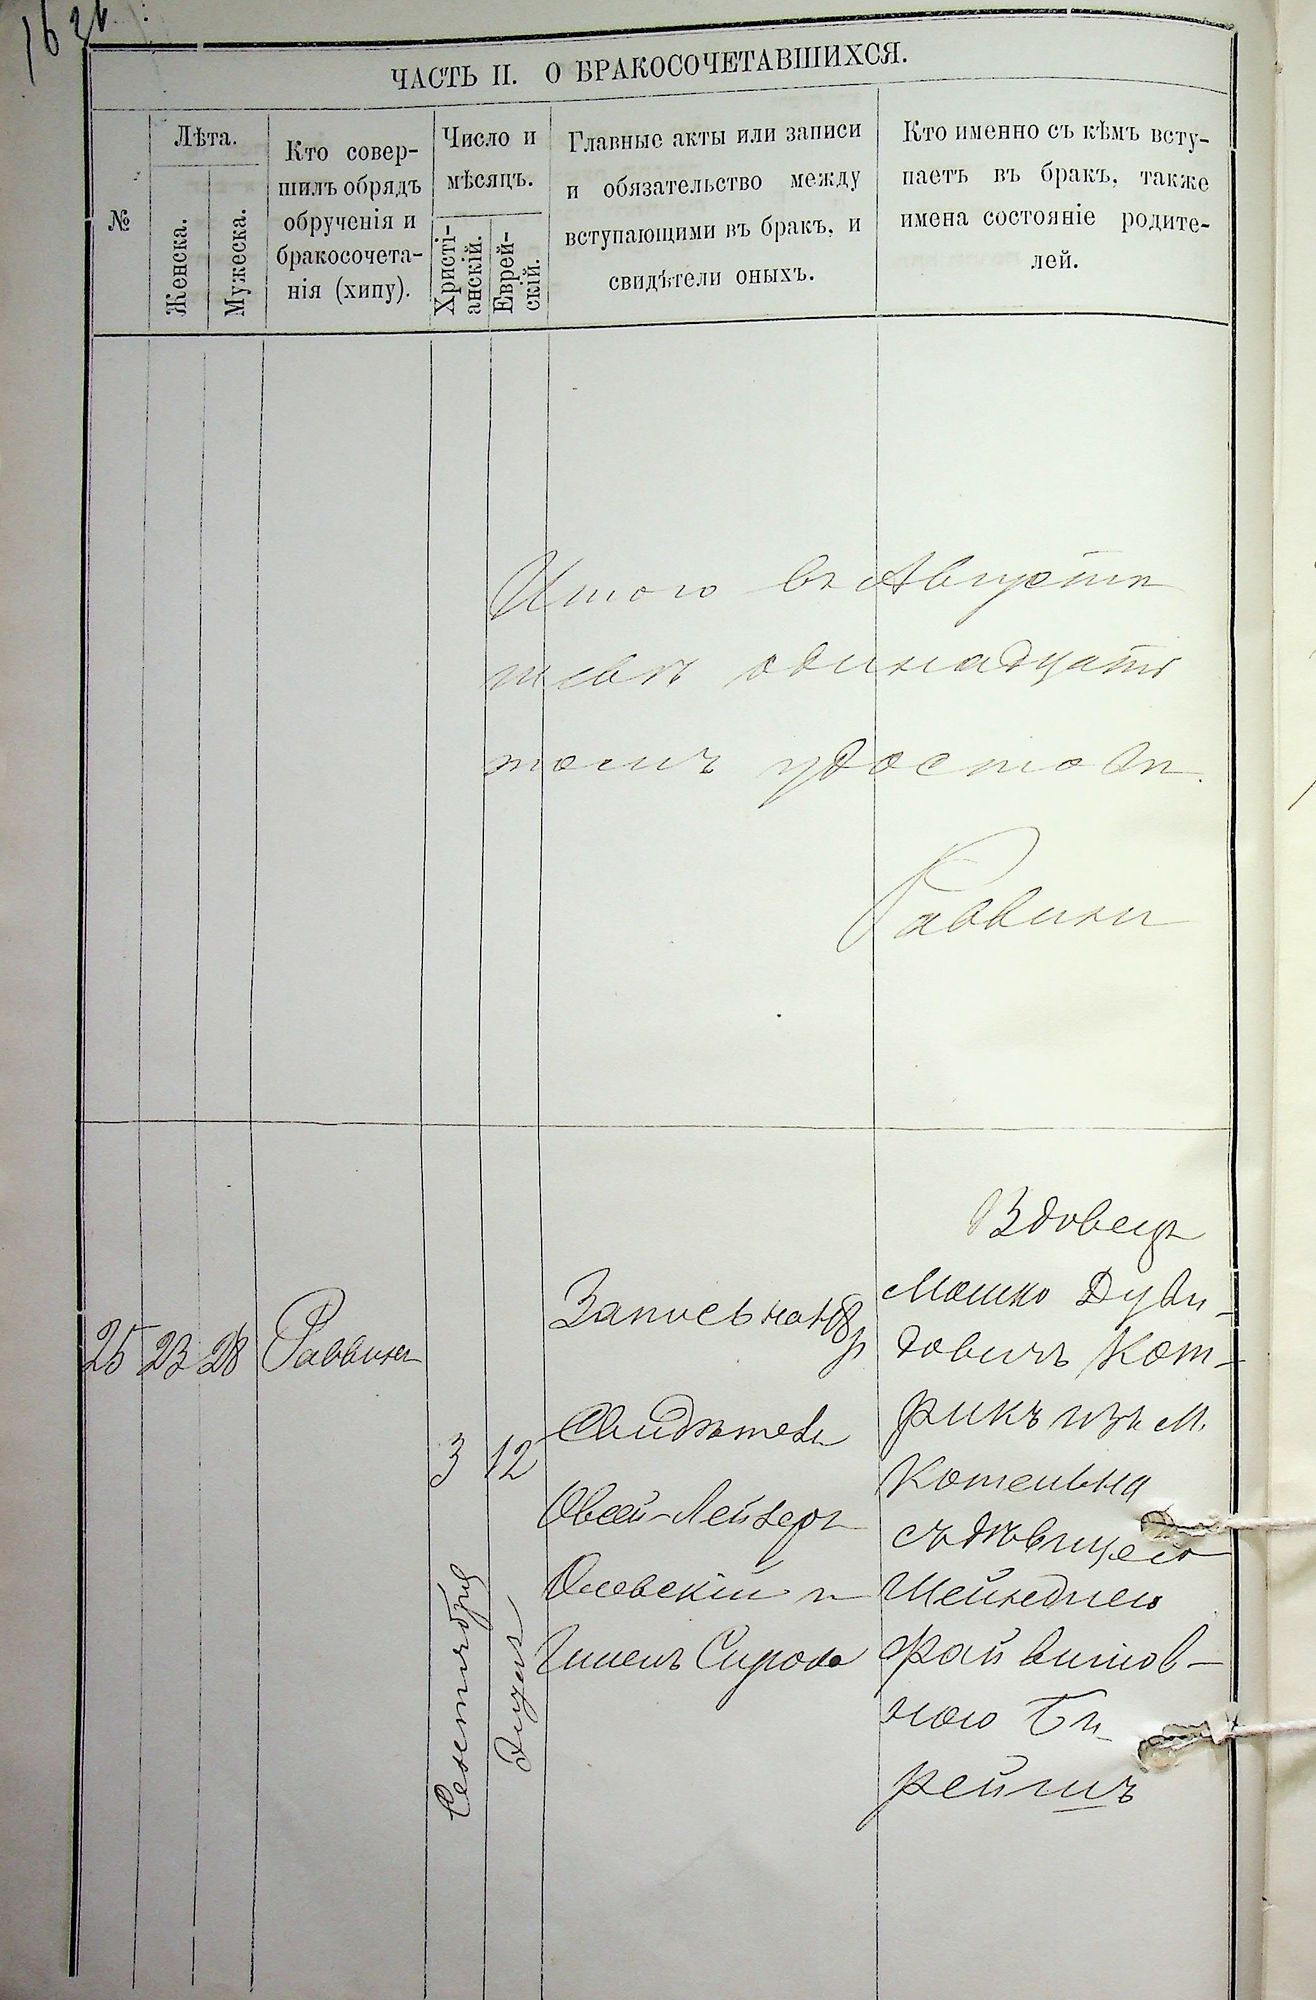 ЧАСТЬ II. О БРАКОСОЧЕТАВШИХСЯ.
№
Лѣта.
Женска.
Мужеска.
Кто совер-
шилъ обрядъ
обрученія и
бракосочета-
нія (хипу).
Число и
мѣсяцъ.
Христі-
анскій.
Еврей-
скій.
Главные акты или записи
и обязательство между
вступающими въ бракъ, и
свидѣтели оныхъ.
Кто именно съ кѣмъ всту-
паетъ въ бракъ, также
имена состояніе родите-
лей.
Итого въ Августѣ
одинадцать
Раввинъ
25
23
28
Раввинъ
3
Сентября
12
Элуля
Запись на 48 р
Свидѣтели
Овсей-Лейзеръ
Олевскій и
Сирота
Вдовецъ
Мошко Дуви-
довичъ Кот-
рикъ изъ м.
Котельна
съ дѣвицею
Шейндлею
Файвишов-
ною Би-